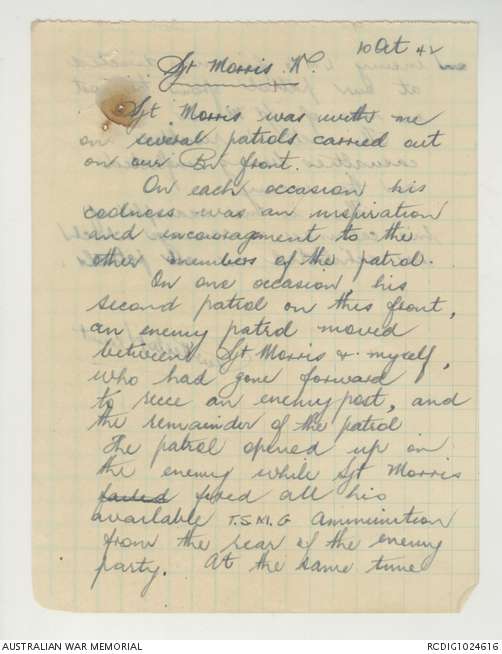 10 Oct 42
Sgt Morris. W.
Sgt Morris was with me
on several patrols carried out
on our Bn front.
On each occasion his
coolness was an inspiration
and encouragement to the
other members of the patrol.
On one occasion, his
second patrol on this front,
an enemy patrol moved
between Sgt Morris & myself,
who had gone forward
to recce an enemy post, and
the remainder of the patrol
The patrol opened up on
the enemy while Sgt Morris
failed fired all his
available T.S.M.G ammunition
from the rear of the enemy
party. At the same time
AUSTRALIAN WAR MEMORIAL
RCDIG1024616